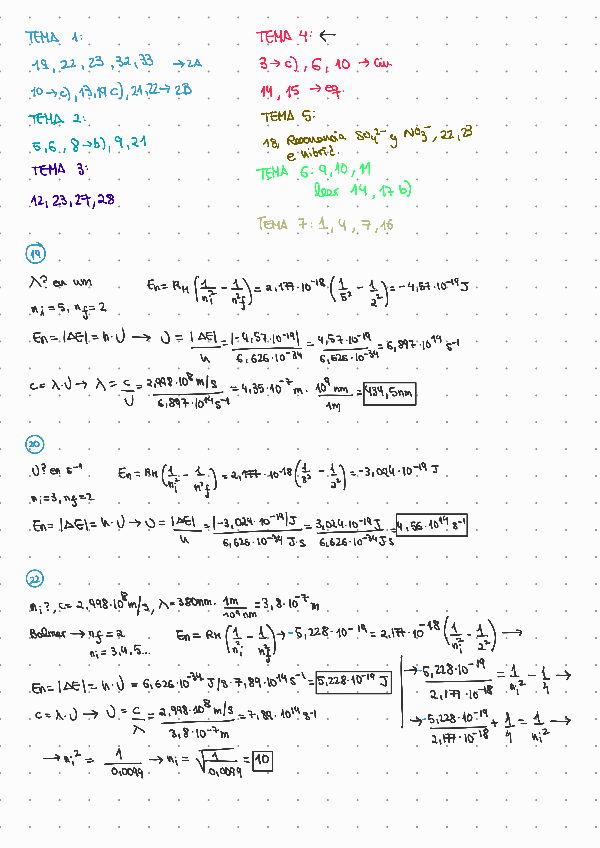 TEMA 1:
19, 22, 23, 32, 33 → 2A
10 → c), 17, 19 c), 21, 22 → 2B
TEMA 2:
5, 6, 8 → b), 9, 21
TEMA 3:
12, 23, 27, 28
TEMA 4: ←
3 → c), 6, 10 → cin
14, 15 → eq.
TEMA 5:
18, Resonancia SO₄²⁻ y NO₃⁻, 22, 23
e hibrid.
TEMA 6: 9, 10, 11
leer 14, 17 b)
TEMA 7: 1, 4, 7, 16
19
λ? en nm
n_i = 5, n_f = 2
En = R_H (1/n_i² - 1/n_f²) = 2,177·10⁻¹⁸ (1/5² - 1/2²) = -4,57·10⁻¹⁹ J
En = |ΔE| = h·υ → υ = |ΔE|/h = |-4,57·10⁻¹⁹|/6,626·10⁻³⁴ = 4,57·10⁻¹⁹/6,626·10⁻³⁴ = 6,897·10¹⁴ s⁻¹
c = λ·υ → λ = c/υ = 2,998·10⁸ m/s / 6,897·10¹⁴ s⁻¹ = 4,35·10⁻⁷ m · 10⁹ nm/1m = 434,5 nm
20
υ? en s⁻¹
n_i = 3, n_f = 2
En = R_H (1/n_i² - 1/n_f²) = 2,177·10⁻¹⁸ (1/3² - 1/2²) = -3,024·10⁻¹⁹ J
En = |ΔE| = h·υ → υ = |ΔE|/h = |-3,024·10⁻¹⁹| J/6,626·10⁻³⁴ J·s = 3,024·10⁻¹⁹ J/6,626·10⁻³⁴ J s = 4,56·10¹⁴ s⁻¹
22
n_i?, c = 2,998·10⁸ m/s, λ = 380 nm · 1m/10⁹ nm = 3,8·10⁻⁷ m
Balmer → n_f = 2
n_i = 3, 4, 5...
En = R_H (1/n_i² - 1/n_f²) → -5,228·10⁻¹⁹ = 2,177·10⁻¹⁸ (1/n_i² - 1/2²) →
En = |ΔE| = h·υ = 6,626·10⁻³⁴ J/s · 7,89·10¹⁴ s⁻¹ = 5,228·10⁻¹⁹ J
c = λ·υ → υ = c/λ = 2,998·10⁸ m/s / 3,8·10⁻⁷ m = 7,89·10¹⁴ s⁻¹
→ -5,228·10⁻¹⁹/2,177·10⁻¹⁸ = 1/n_i² - 1/4 →
→ -5,228·10⁻¹⁹/2,177·10⁻¹⁸ + 1/4 = 1/n_i² →
→ n_i² = 1/0,0099 → n_i = √(1/0,0099) = 10